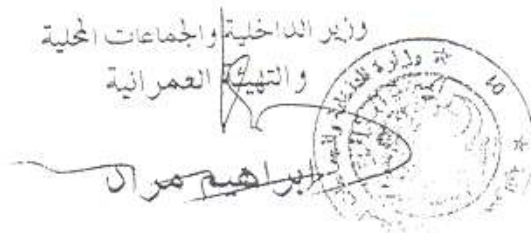 وزير الداخلية والجماعات المحلية
والتهيئة العمرانية
ابراهيم مراد
وزارة الداخلية